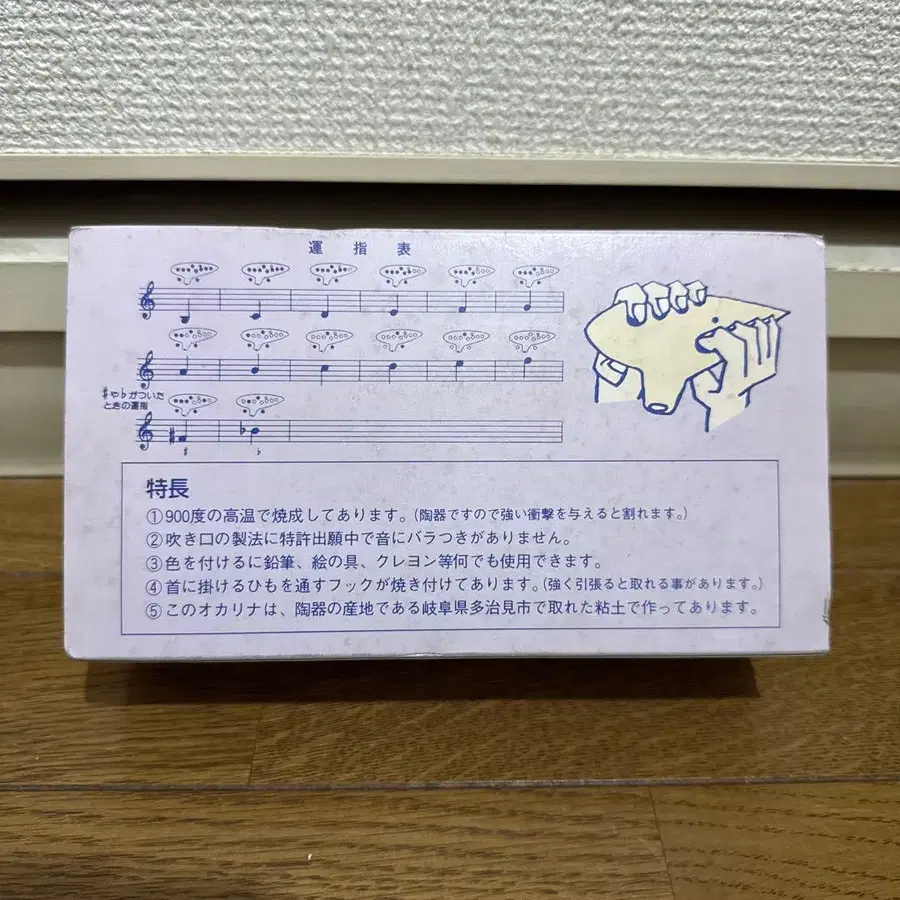 運指表
#や♭がついた
ときの運指
# ♭
特長
①900度の高温で焼成してあります。(陶器ですので強い衝撃を与えると割れます。)
②吹き口の製法に特許出願中で音にバラつきがありません。
③色を付けるに鉛筆、絵の具、クレヨン等何でも使用できます。
④首に掛けるひもを通すフックが焼き付けてあります。(強く引張ると取れる事があります。)
⑤このオカリナは、陶器の産地である岐阜県多治見市で取れた粘土で作ってあります。